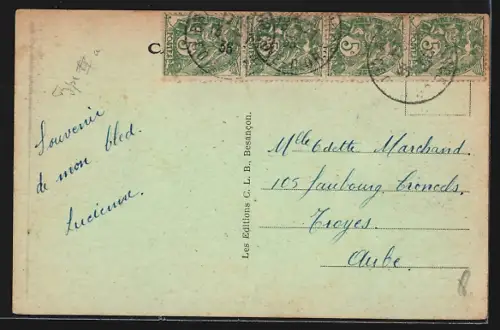 CA
Type III a
Souvenir
de mon bled.
Lucienne.
Les Editions C. L. B., Besançon.
Mlle Odette Marchand.
105 faubourg Croncels.
Troyes.
Aube.
5
5